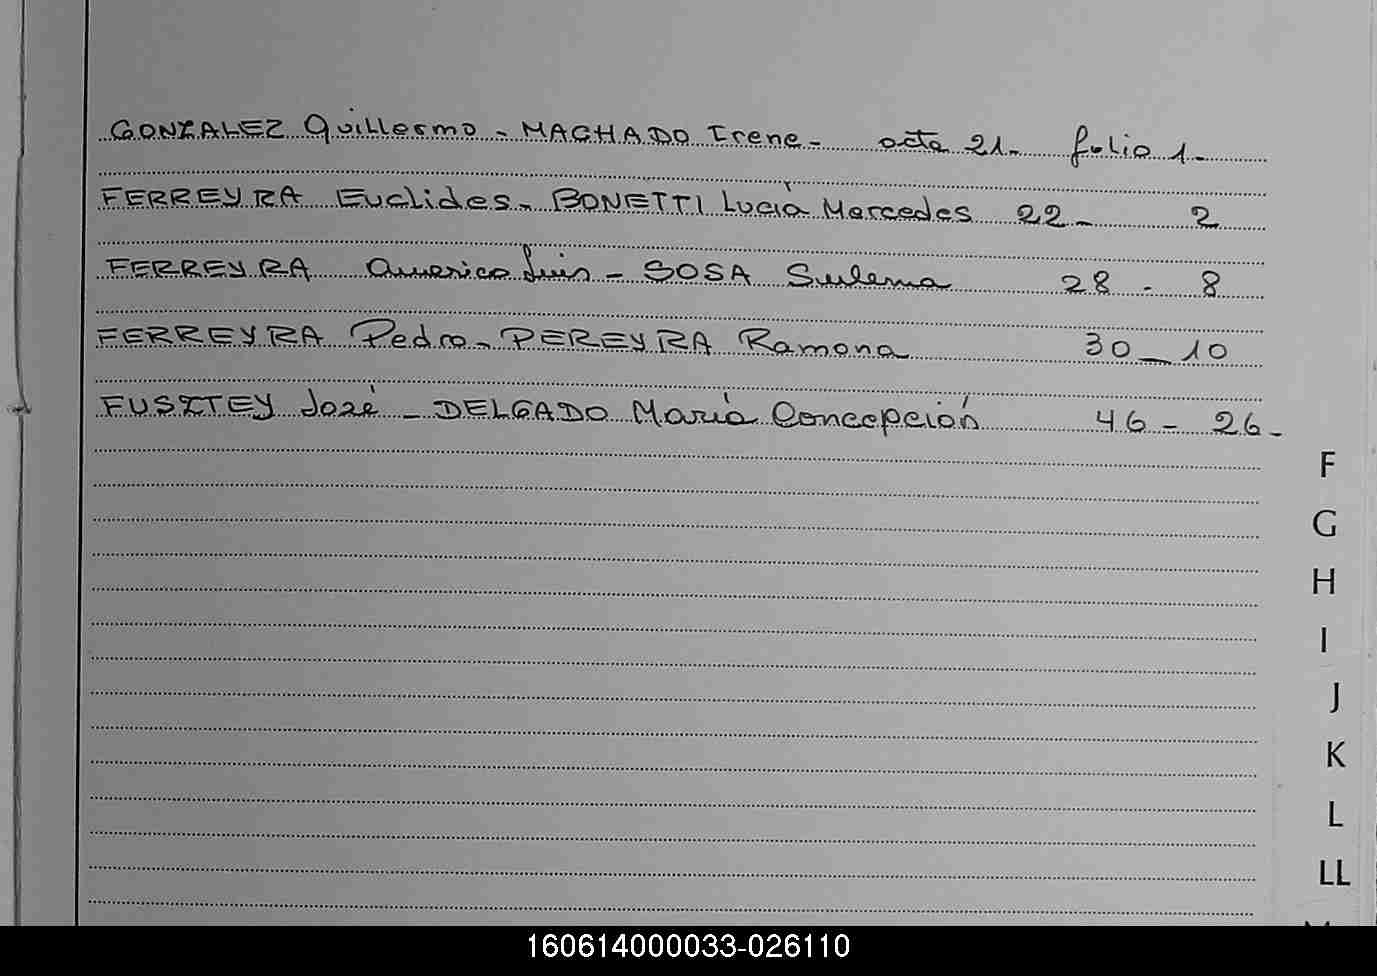 GONZALEZ Guillermo - MACHADO Irene - acta 21 - folio 1 -
FERREYRA Euclides - BONETTI Lucía Mercedes 22 - 2
FERREYRA Americo Luis - SOSA Sulema 28 - 8
FERREYRA Pedro - PEREYRA Ramona 30 - 10
FUSZTEY José - DELGADO María Concepción 46 - 26 -
F
G
H
I
J
K
L
LL
160614000033-026110